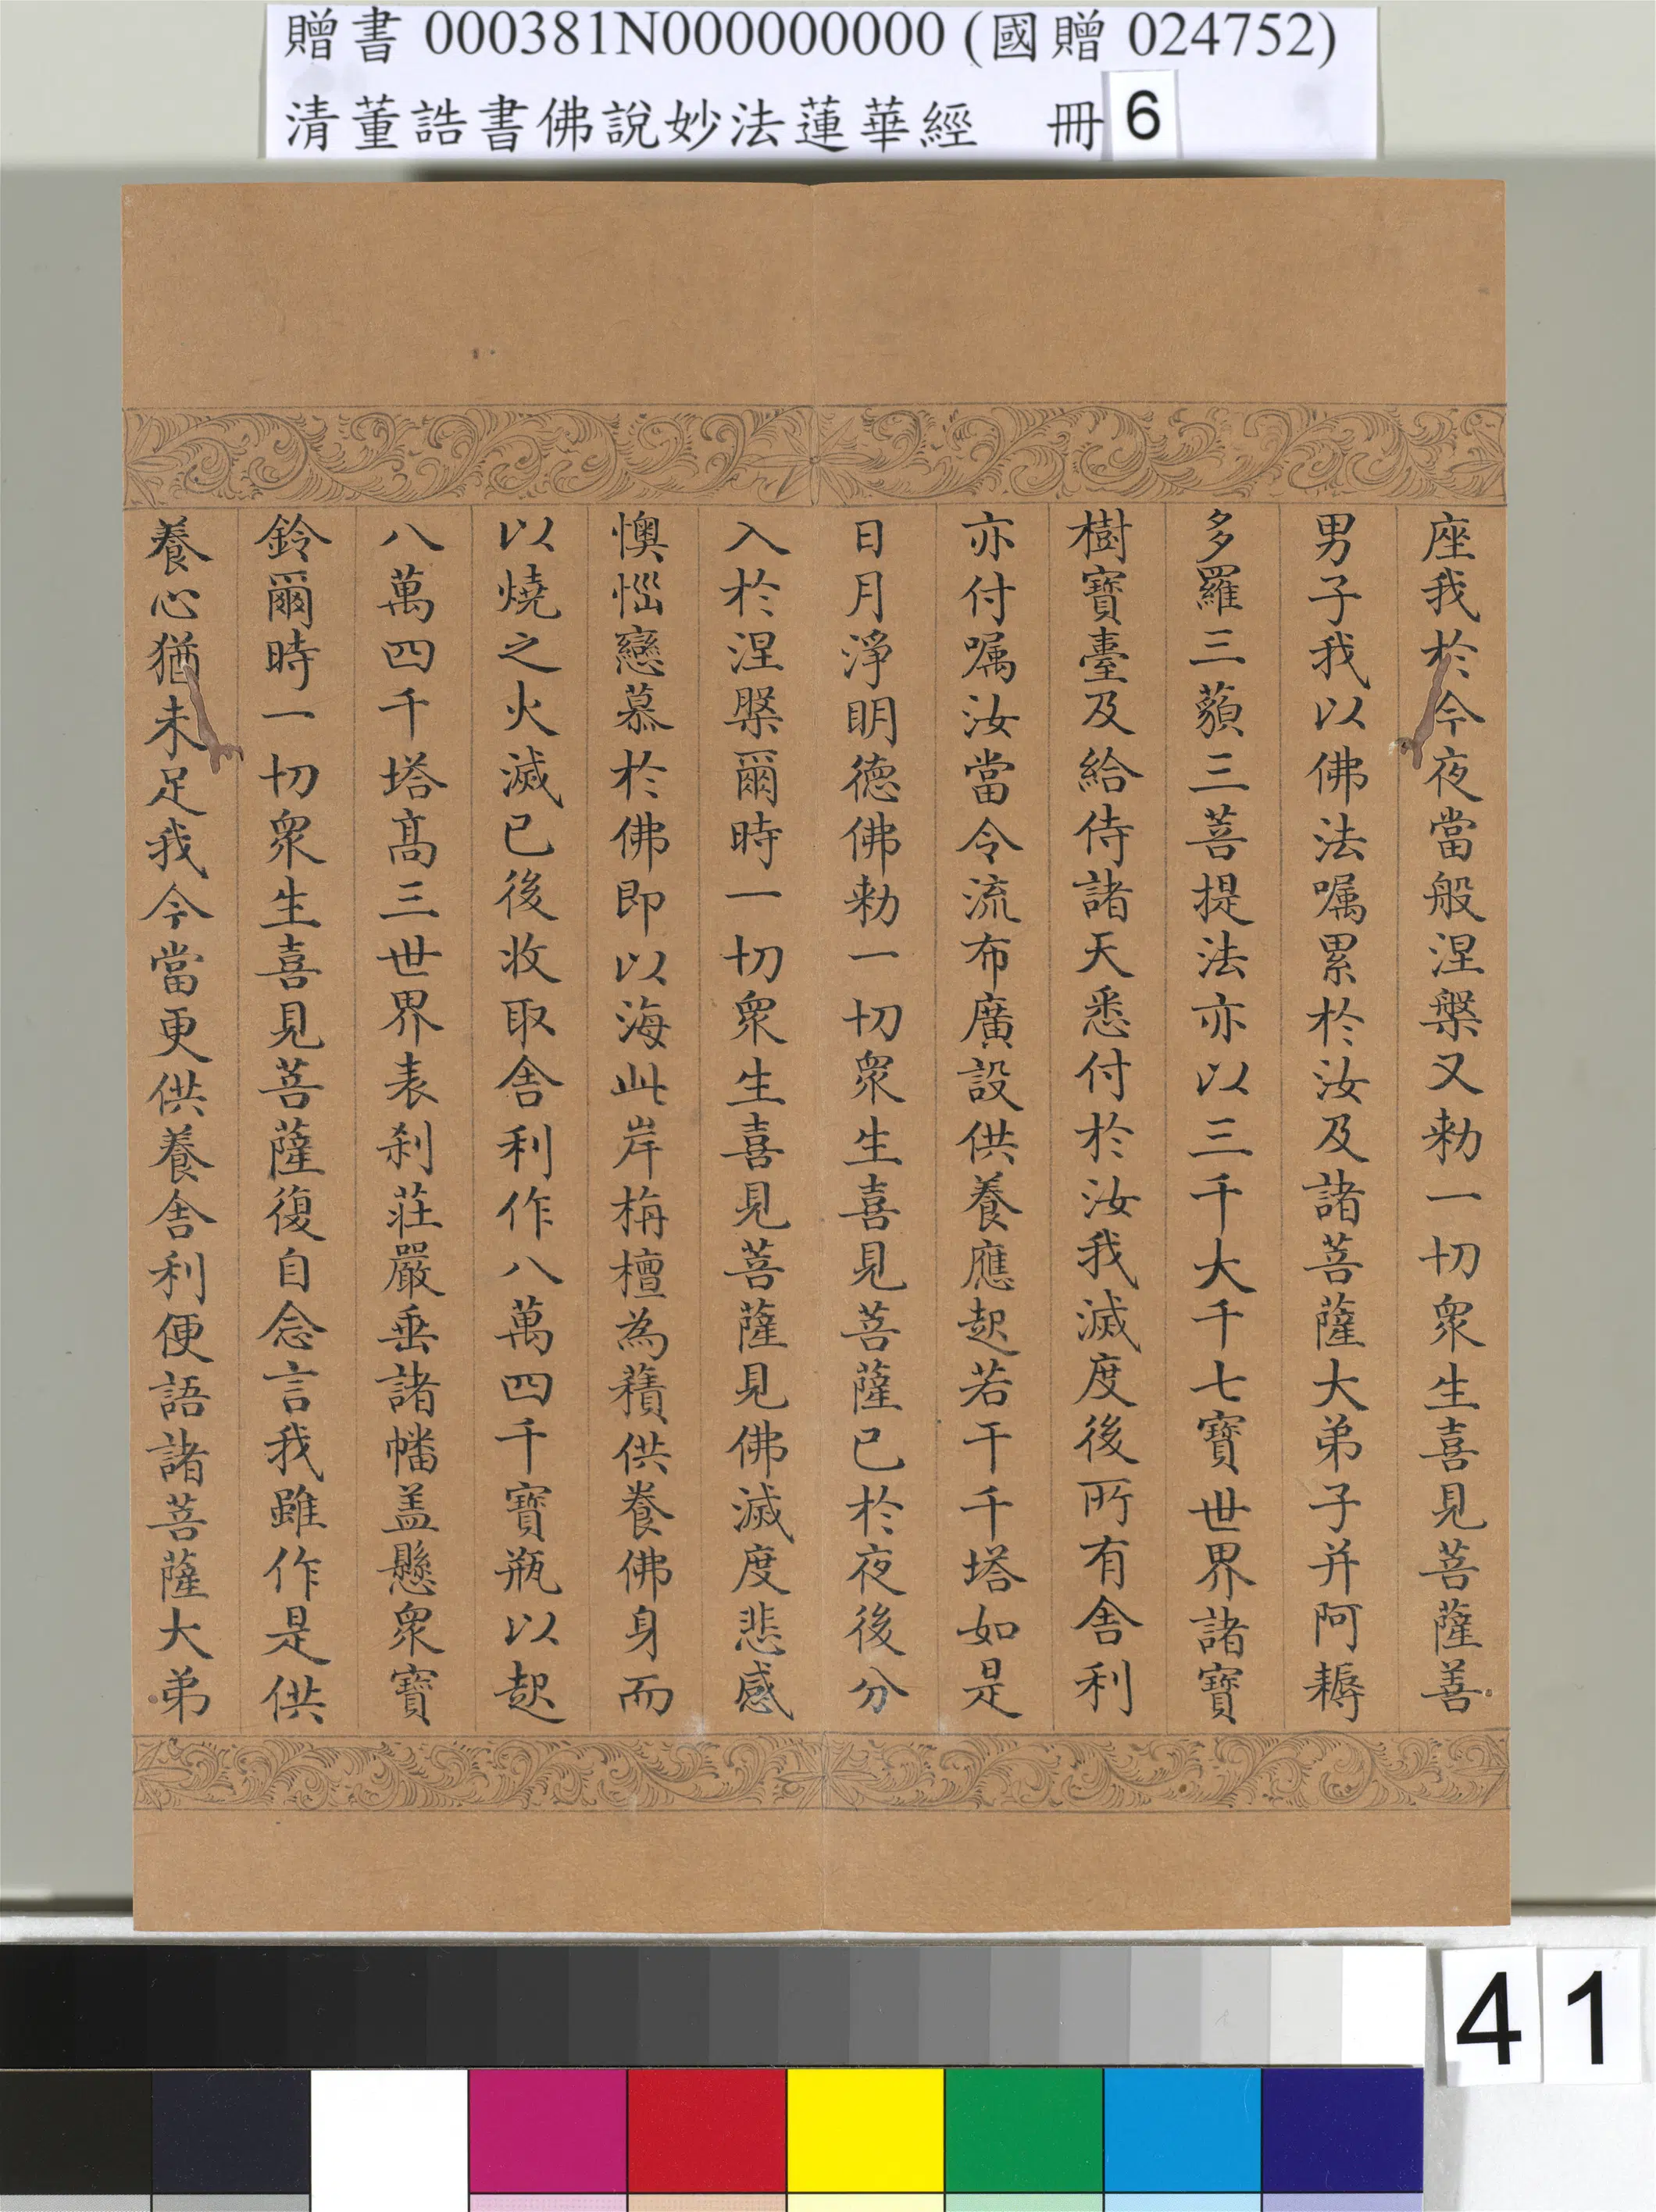 贈書 000381N000000000 (國贈 024752)
清董誥書佛說妙法蓮華經 冊 6
座我於今夜當般涅槃又勑一切眾生喜見菩薩善
男子我以佛法嘱累於汝及諸菩薩大弟子并阿耨
多羅三藐三菩提法亦以三千大千七寶世界諸寶
樹寶臺及給侍諸天悉付於汝我滅度後所有舍利
亦付嘱汝當令流布廣設供養應起若干千塔如是
日月淨明德佛勑一切眾生喜見菩薩已於夜後分
入於涅槃爾時一切眾生喜見菩薩見佛滅度悲感
懊惱戀慕於佛即以海此岸栴檀為𧂐供養佛身而
以燒之火滅已後收取舍利作八萬四千寶瓶以起
八萬四千塔髙三世界表剎莊嚴垂諸幡盖懸眾寶
鈴爾時一切眾生喜見菩薩復自念言我雖作是供
養心猶未足我今當更供養舍利便語諸菩薩大弟
41